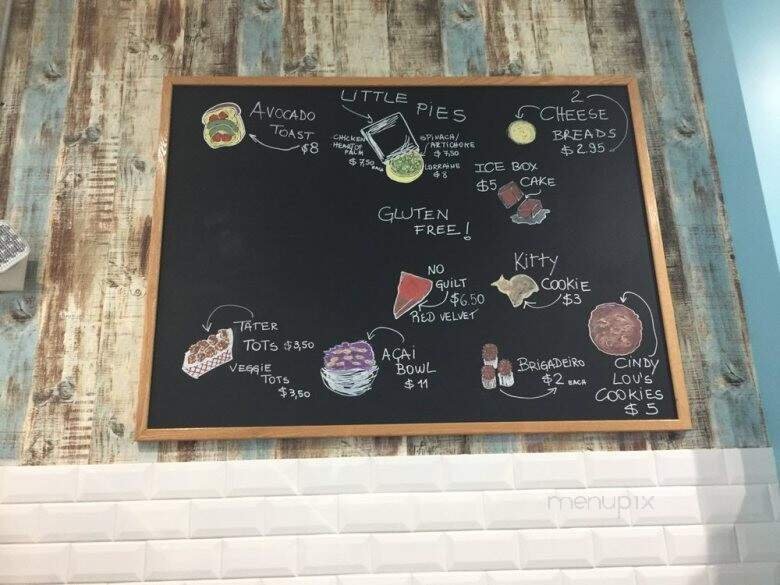 AVOCADO
TOAST
$8
LITTLE PIES
CHICKEN
HEART OF
PALM
$7,50
EACH
SPINACH/
ARTICHOKE
$7,50
LORRAINE
$8
2
CHEESE
BREADS
$2.95
ICE BOX
$5 CAKE
GLUTEN
FREE!
NO
GUILT
$6.50
RED VELVET
Kitty
COOKIE
$3
TATER
TOTS $3,50
VEGGIE
TOTS
$3,50
AÇAÍ
BOWL
$11
BRIGADEIRO
$2 EACH
CINDY
LOU'S
COOKIES
$5
menupix